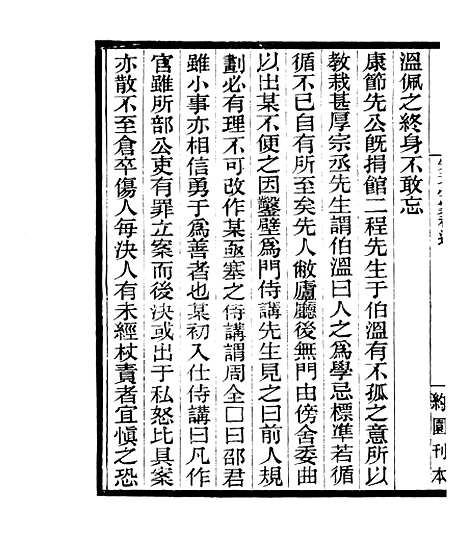 溫佩之終身不敢忘
康節先公旣捐館二程先生于伯溫有不孤之意所以
教栽甚厚宗丞先生謂伯溫曰人之爲學忌標準若循
循不已自有所至矣先人敝廬廳後無門由傍舍委曲
以出某不便之因鑿壁爲門侍講先生見之曰前人規
劃必有理不可改作某亟塞之侍講謂周全□曰邵君
雖小事亦相信勇于爲善者也某初入仕侍講曰凡作
官雖所部公吏有罪立案而後決或出于私怒比具案
亦散不至倉卒傷人每決人有未經杖責者宜慎之恐
約園刊本